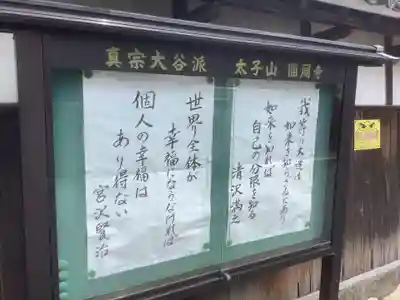 真宗大谷派　太子山　圓周寺
我等の大迷は
如来を知らざるにあり
如来を知れば
自己の分限を知る
清沢満之
世界が全体が
幸福にならなければ
個人の幸福は
あり得ない
宮沢賢治